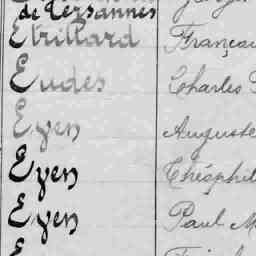 de Cersannes
Etrillard Françoi
Eudes Charles
Eyen Auguste
Eyen Théophil
Eyen Paul M